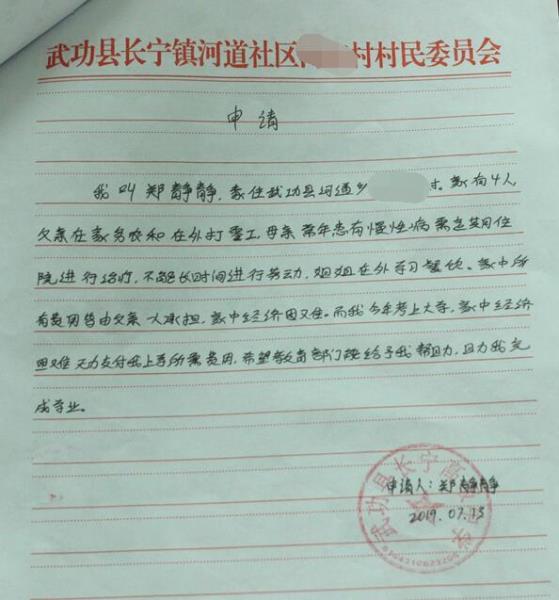 武功县长宁镇河道社区 村村民委员会
申请
我叫郑静静，家住武功县河道乡 村。家有4人，
父亲在家务农和在外打零工，母亲常年患有慢性病需定期住
院进行治疗，不能长时间进行劳动，姐姐在外学习餐饮。家中所
有费用皆由父亲一人承担，家中经济困难。而我今年考上大学，家中经济
困难无力支付我上学所需费用，希望教育部门能给予我帮助，助力我完
成学业。
申请人：郑静静
2019.07.13
武功县长宁高